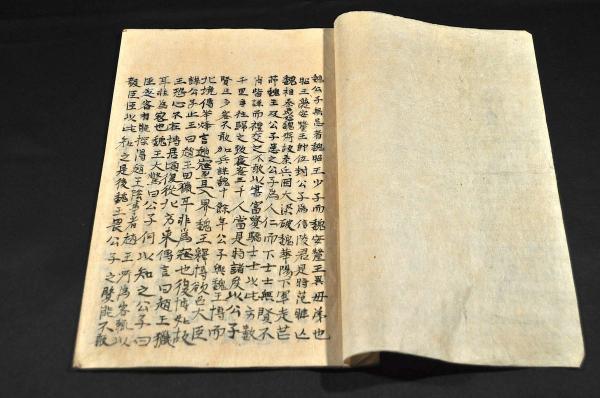 魏公子無忌者魏昭王少子而魏安釐王異母弟也
昭王薨安釐王即位封公子為信陵君是時范雎亡
魏相秦以怨魏齊故秦兵圍大梁破魏華陽下軍走芒
卯魏王及公子患之公子為人仁而下士士無賢不
肖皆謙而禮交之不敢以其富貴驕士士以此方數
千里爭往歸之致食客三千人當是時諸侯以公子
賢且多客不敢加兵謀魏十餘年公子與魏王博而
北境傳舉烽言趙寇至且入界魏王釋博欲召大臣
謀公子止王曰趙王田獵耳非為寇也復博如故
王恐心不在博居頃復從北方來傳言曰趙王獵
耳非為寇也王大驚曰公子何以知之公子曰
臣之客有能探得趙王陰事者趙王所為客輒以
報臣臣以此知之是後魏王畏公子之賢能不敢